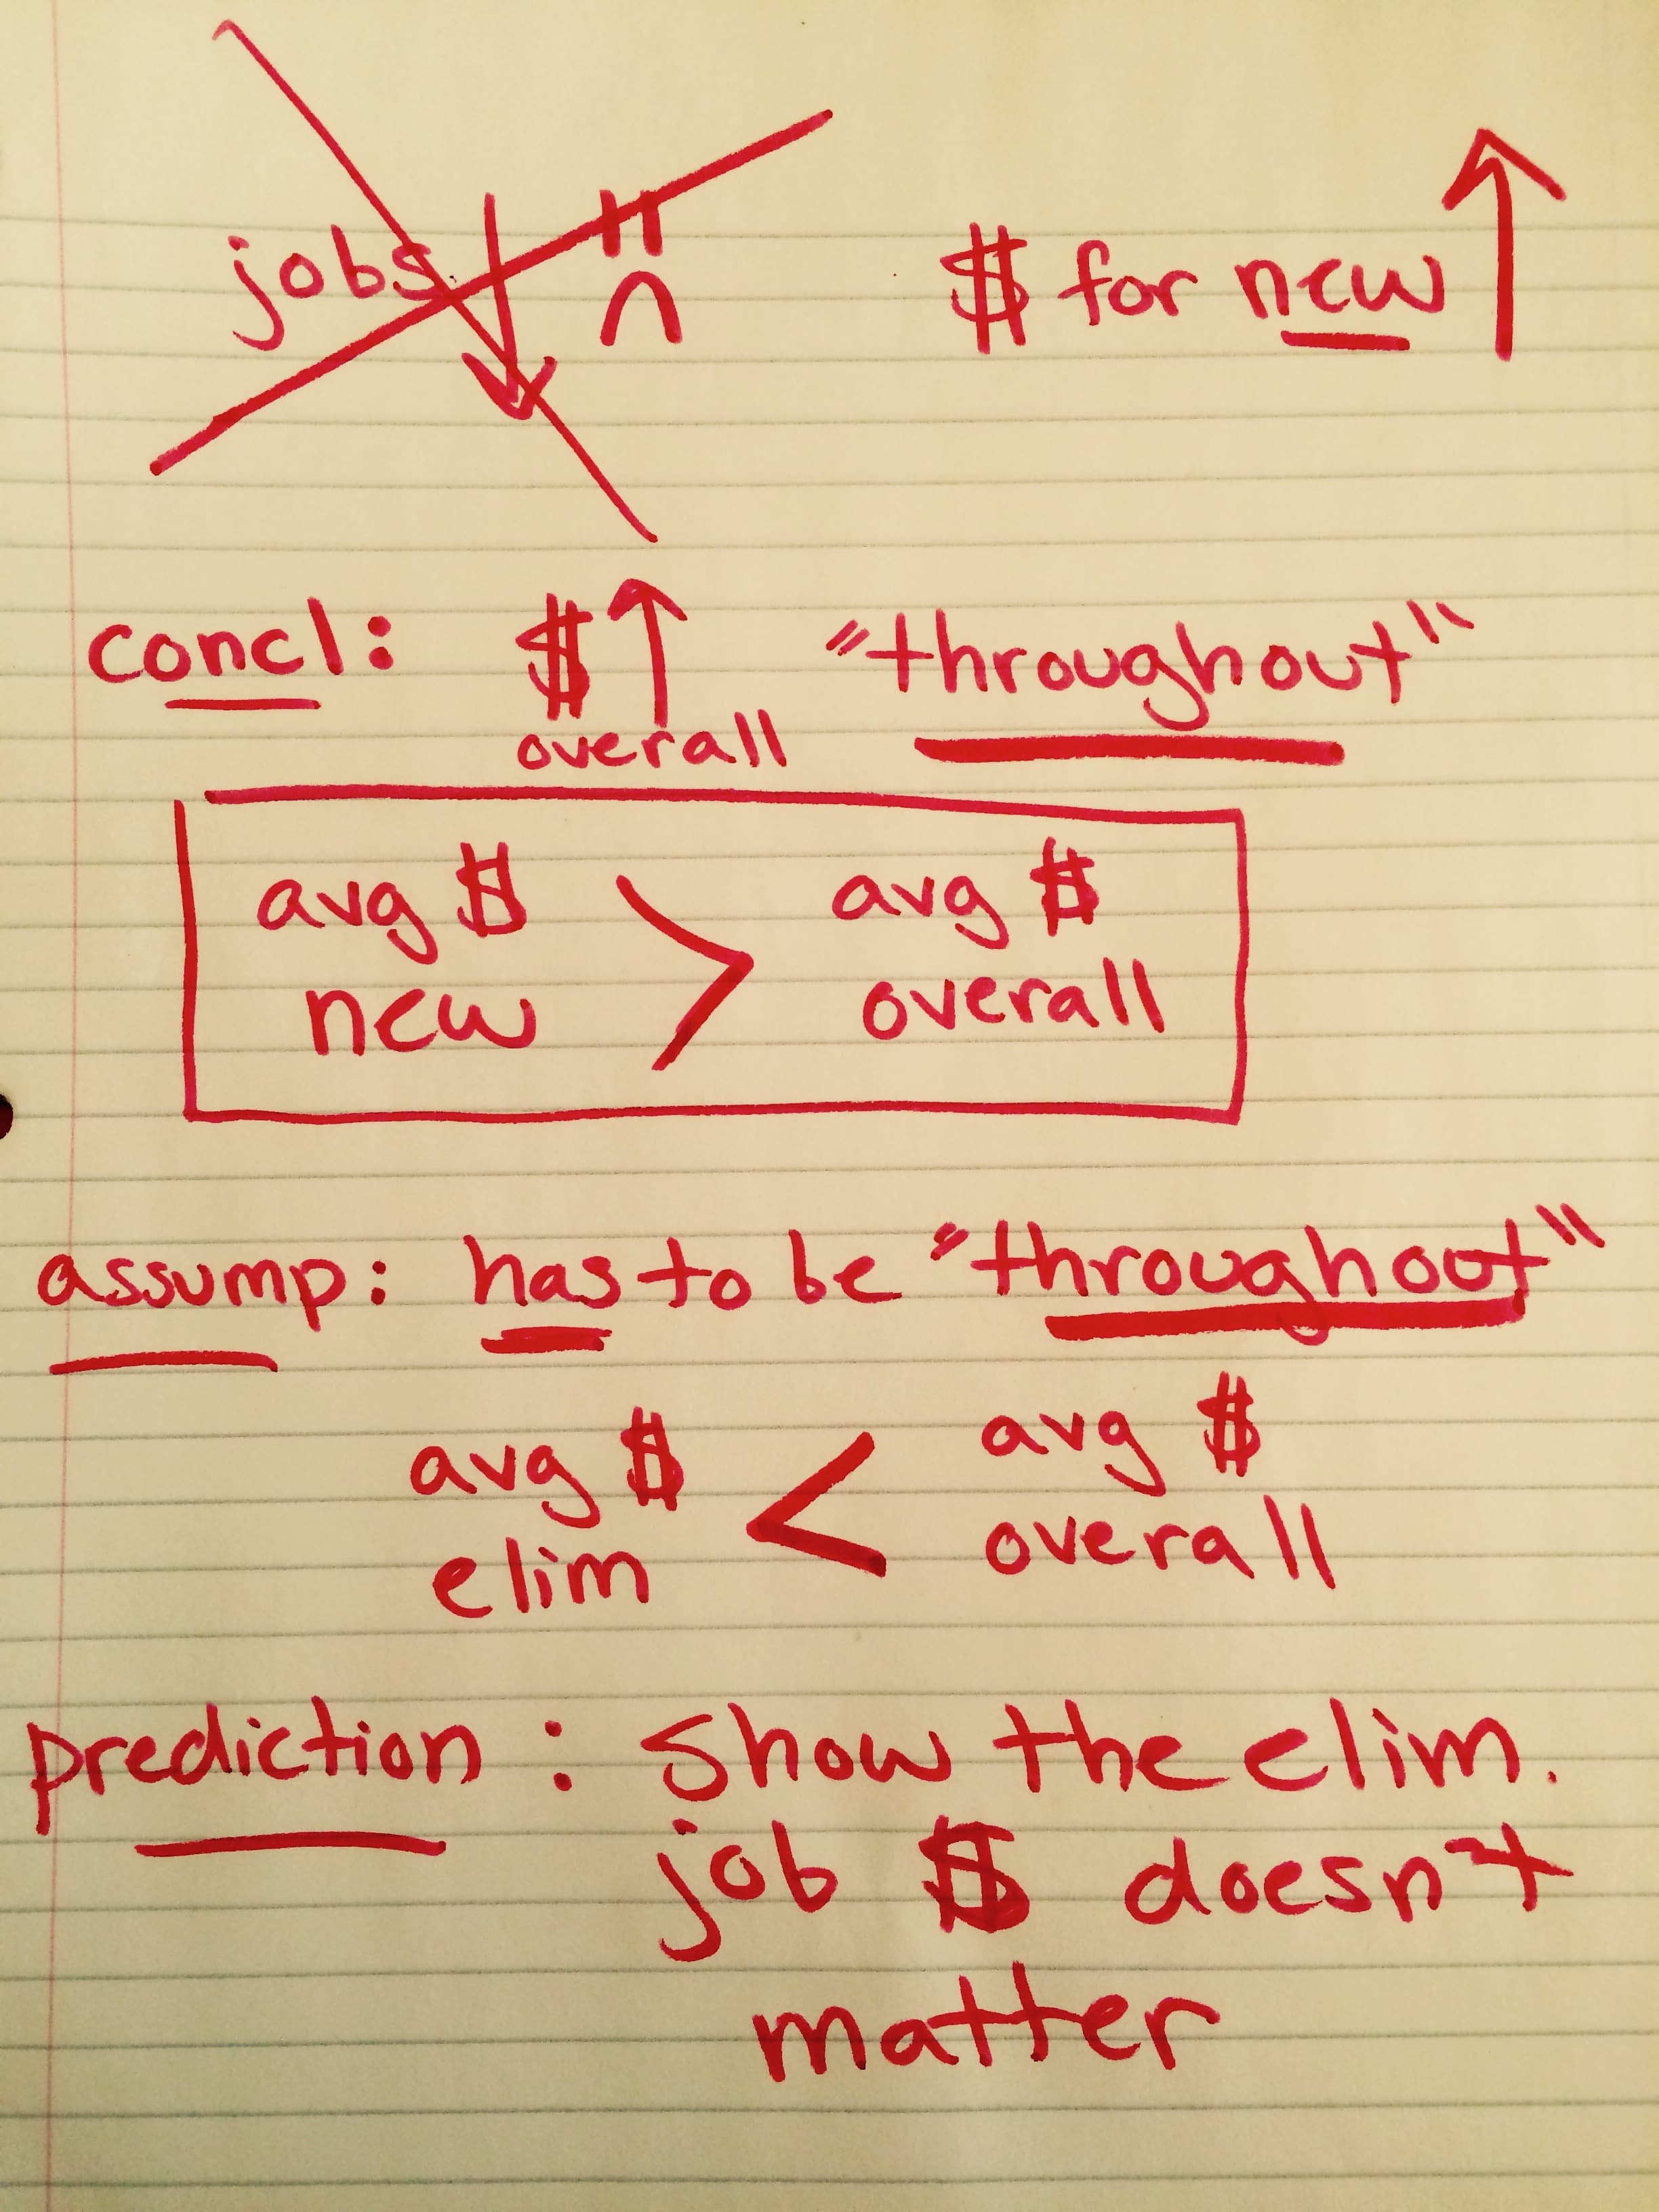 jobs ↓ $ for new ↑
concl: $ ↑ "throughout"
overall
avg $ > avg $
new overall
assump: has to be "throughout"
avg $ < avg $
elim overall
prediction: show the elim.
job $ doesn't
matter